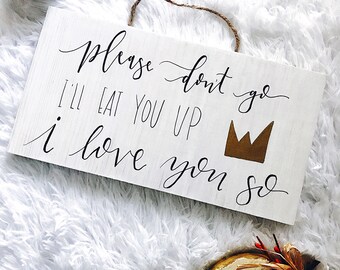 please don't go
I'LL EAT YOU UP
i love you so